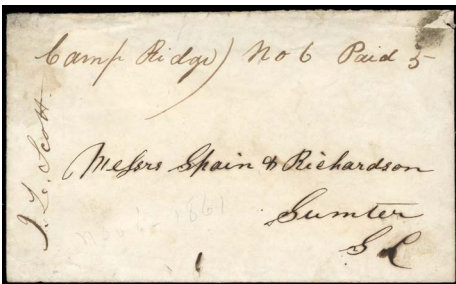 Camp Ridge) No 6 Paid 5
J. L. Scott.
Messrs Spain & Richardson
Sumter
S C
Nov 6 1861